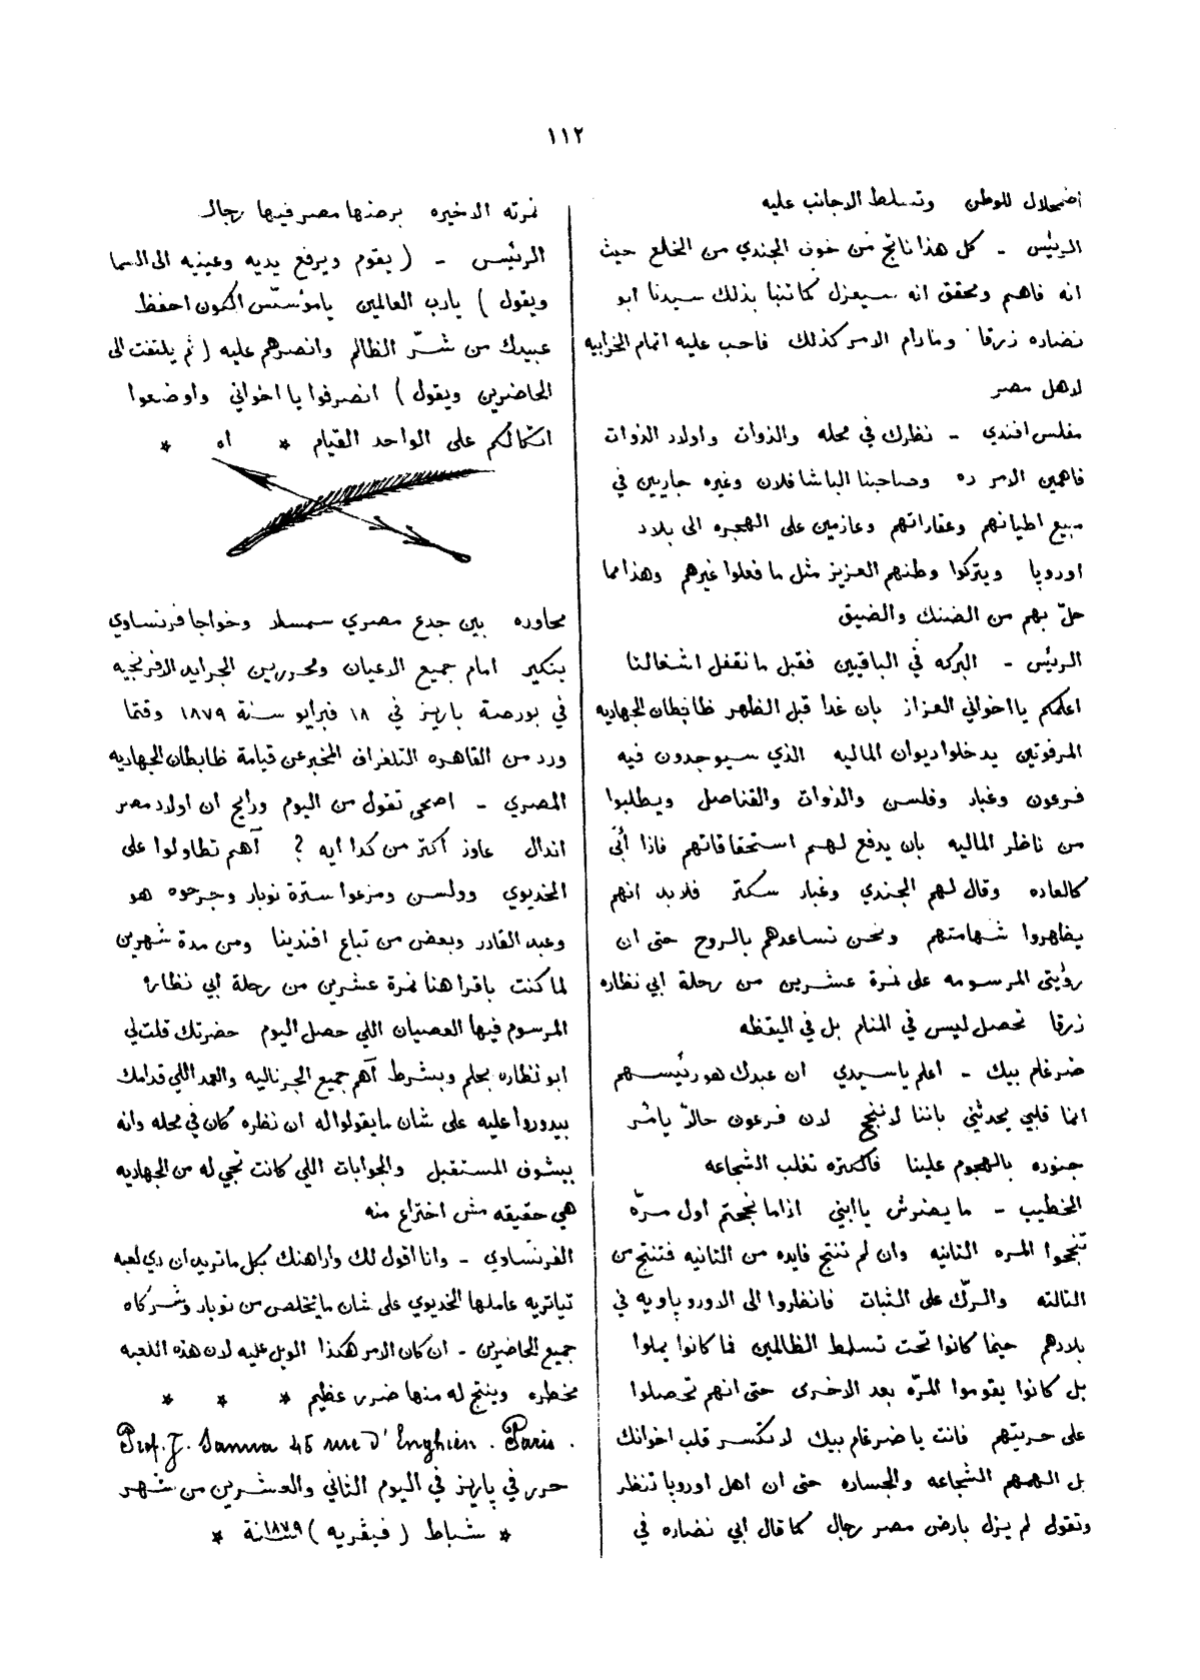 ١١٢
اضمحلال للوطن وتسلط الاجانب عليه
الرئيس - كل هذا ناتج من خوف الجندي من الخلع حيث
انه فاهم ومحقق انه سيعزل كما تنبا بذلك سيدنا ابو
نضاره زرقا ومادام الامر كذلك فاحب عليه اتمام الخرابيه
لاهل مصر
مفلس افندي - نظارك في محله والذوات واولاد الذوات
فاهمين الامر ده وصاحبنا الباشا فلان وغيره جاريين في
مبيع اطيانهم وعقاراتهم وعازمين على الهجره الى بلاد
اوروبا ويتركوا وطنهم العزيز مثل ما فعلوا غيرهم وهذا مما
حلّ بهم من الضنك والضيق
الرئيس - البركه في الباقيين فقبل ما نقفل اشغالنا
اعلمكم يا اخواني العزاز بان غدا قبل الظهر ظابطان الجهاديه
المرفوتين يدخلوا ديوان الماليه الذي سيوجدون فيه
فرعون وغبار وفلسن والذوات والقناصل ويطلبوا
من ناظر الماليه بان يدفع لهم استحقاقاتهم فاذا أبَى
كالعاده وقال لهم الجندي وغبار سكتر فلابد انهم
يظاهروا شهامتهم ونحن نساعدهم بالروح حتى ان
رؤيتى المرسومه على نمرة عشرين من رحلة ابي نظاره
زرقا تحصل ليس في المنام بل في اليقظه
ضرغام بيك - اعلم يا سيدي ان عبدك هو رئيسهم
انما قلبي يحدثني باننا لا ننجح لان فرعون حالاً يامر
جنوده بالهجوم علينا فالكتره تغلب الشجاعه
الخطيب - ما يضرش يا ابني اذا ما نجحتم اول مرّه
تنجحوا المره التانيه وان لم تنتج فايده من التانيه فتنتج من
التالته والرّك على الثبات فانظروا الى الاوروباويه في
بلادهم حينما كانوا تحت تسلط الظالمين فما كانوا يملوا
بل كانوا يقوموا المرّه بعد الاخرى حتى انهم تحصلوا
على حريتهم فانت يا ضرغام بيك لا تكسر قلب اخوانك
بل الهمهم الشجاعه والجساره حتى ان اهل اوروبا تنظر
وتقول لم يزل بارض مصر رجال كما قال ابي نضاره في
نمرته الاخيره برضها مصر فيها رجال
الرئيس - ( يقوم ويرفع يديه وعينيه الى السما
ويقول ) يارب العالمين يا مؤسّس الكون احفظ
عبيدك من شرّ الظالم وانصرهم عليه ( ثم يلتفت الى
الحاضرين ويقول ) انصرفوا يا اخواني واوضعوا
اتكالكم على الواحد القيام * اه *
محاوره بين جدع مصري سمسار وخواجا فرنساوي
بنكير امام جميع الاعيان ومحررين الجرايد الافرنجيه
في بورصة باريز في ١٨ فبرايو سنة ١٨٧٩ وقتما
ورد من القاهره التلغراف المخبر عن قيامة ظابطان الجهاديه
المصري - اصحى تقول من اليوم ورايح ان اولاد مصر
اندال عاوز أكتر من كدا ايه ؟ آهم تطاولوا على
الخديوي وولسن ومزعوا سترة نوبار وجرحوه هو
وعبد القادر وبعض من تباع افندينا ومن مدة شهرين
لما كنت باقرا هنا نمرة عشرين من رحلة أبي نظاره
المرسوم فيها العصيان اللي حصل اليوم حضرتك قلت لي
ابو نظاره بحلم وبشرط آهم جميع الجرناليه والعمد اللي قدامك
بيدوروا عليه على شان ما يقولوا له ان نظره كان في محله وانه
بيشوف المستقبل والجوابات اللي كانت تجي له من الجهاديه
هي حقيقه مش اختراع منه
الفرنساوي - وانا اقول لك واراهنك بكل ما تريد ان دي لعبه
تياتريه عاملها الخديوي على شان ما يتخلص من نوبار وشركاه
جميع الحاضرين - ان كان الامر هكذا الويل عليه لان هذه اللعبه
مخطره وينتج له منها ضرر عظيم * * *
Prof. J. Sanua 45 rue d'Enghien. Paris.
حرر في باريز في اليوم الثاني والعشرين من شهر
* شباط ( فيڤريه ) سنة ١٨٧٩ *